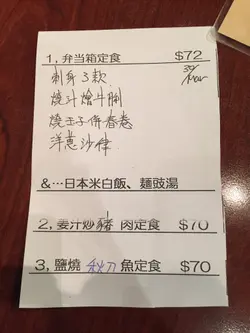 1, 弁当箱定食 $72
30/Nov
刺身3款
燒汁燴牛脷
燒玉子併春卷
洋蔥沙律
&...日本米白飯、麵豉湯
2, 姜汁炒豬肉定食 $70
3, 鹽燒秋刀魚定食 $70